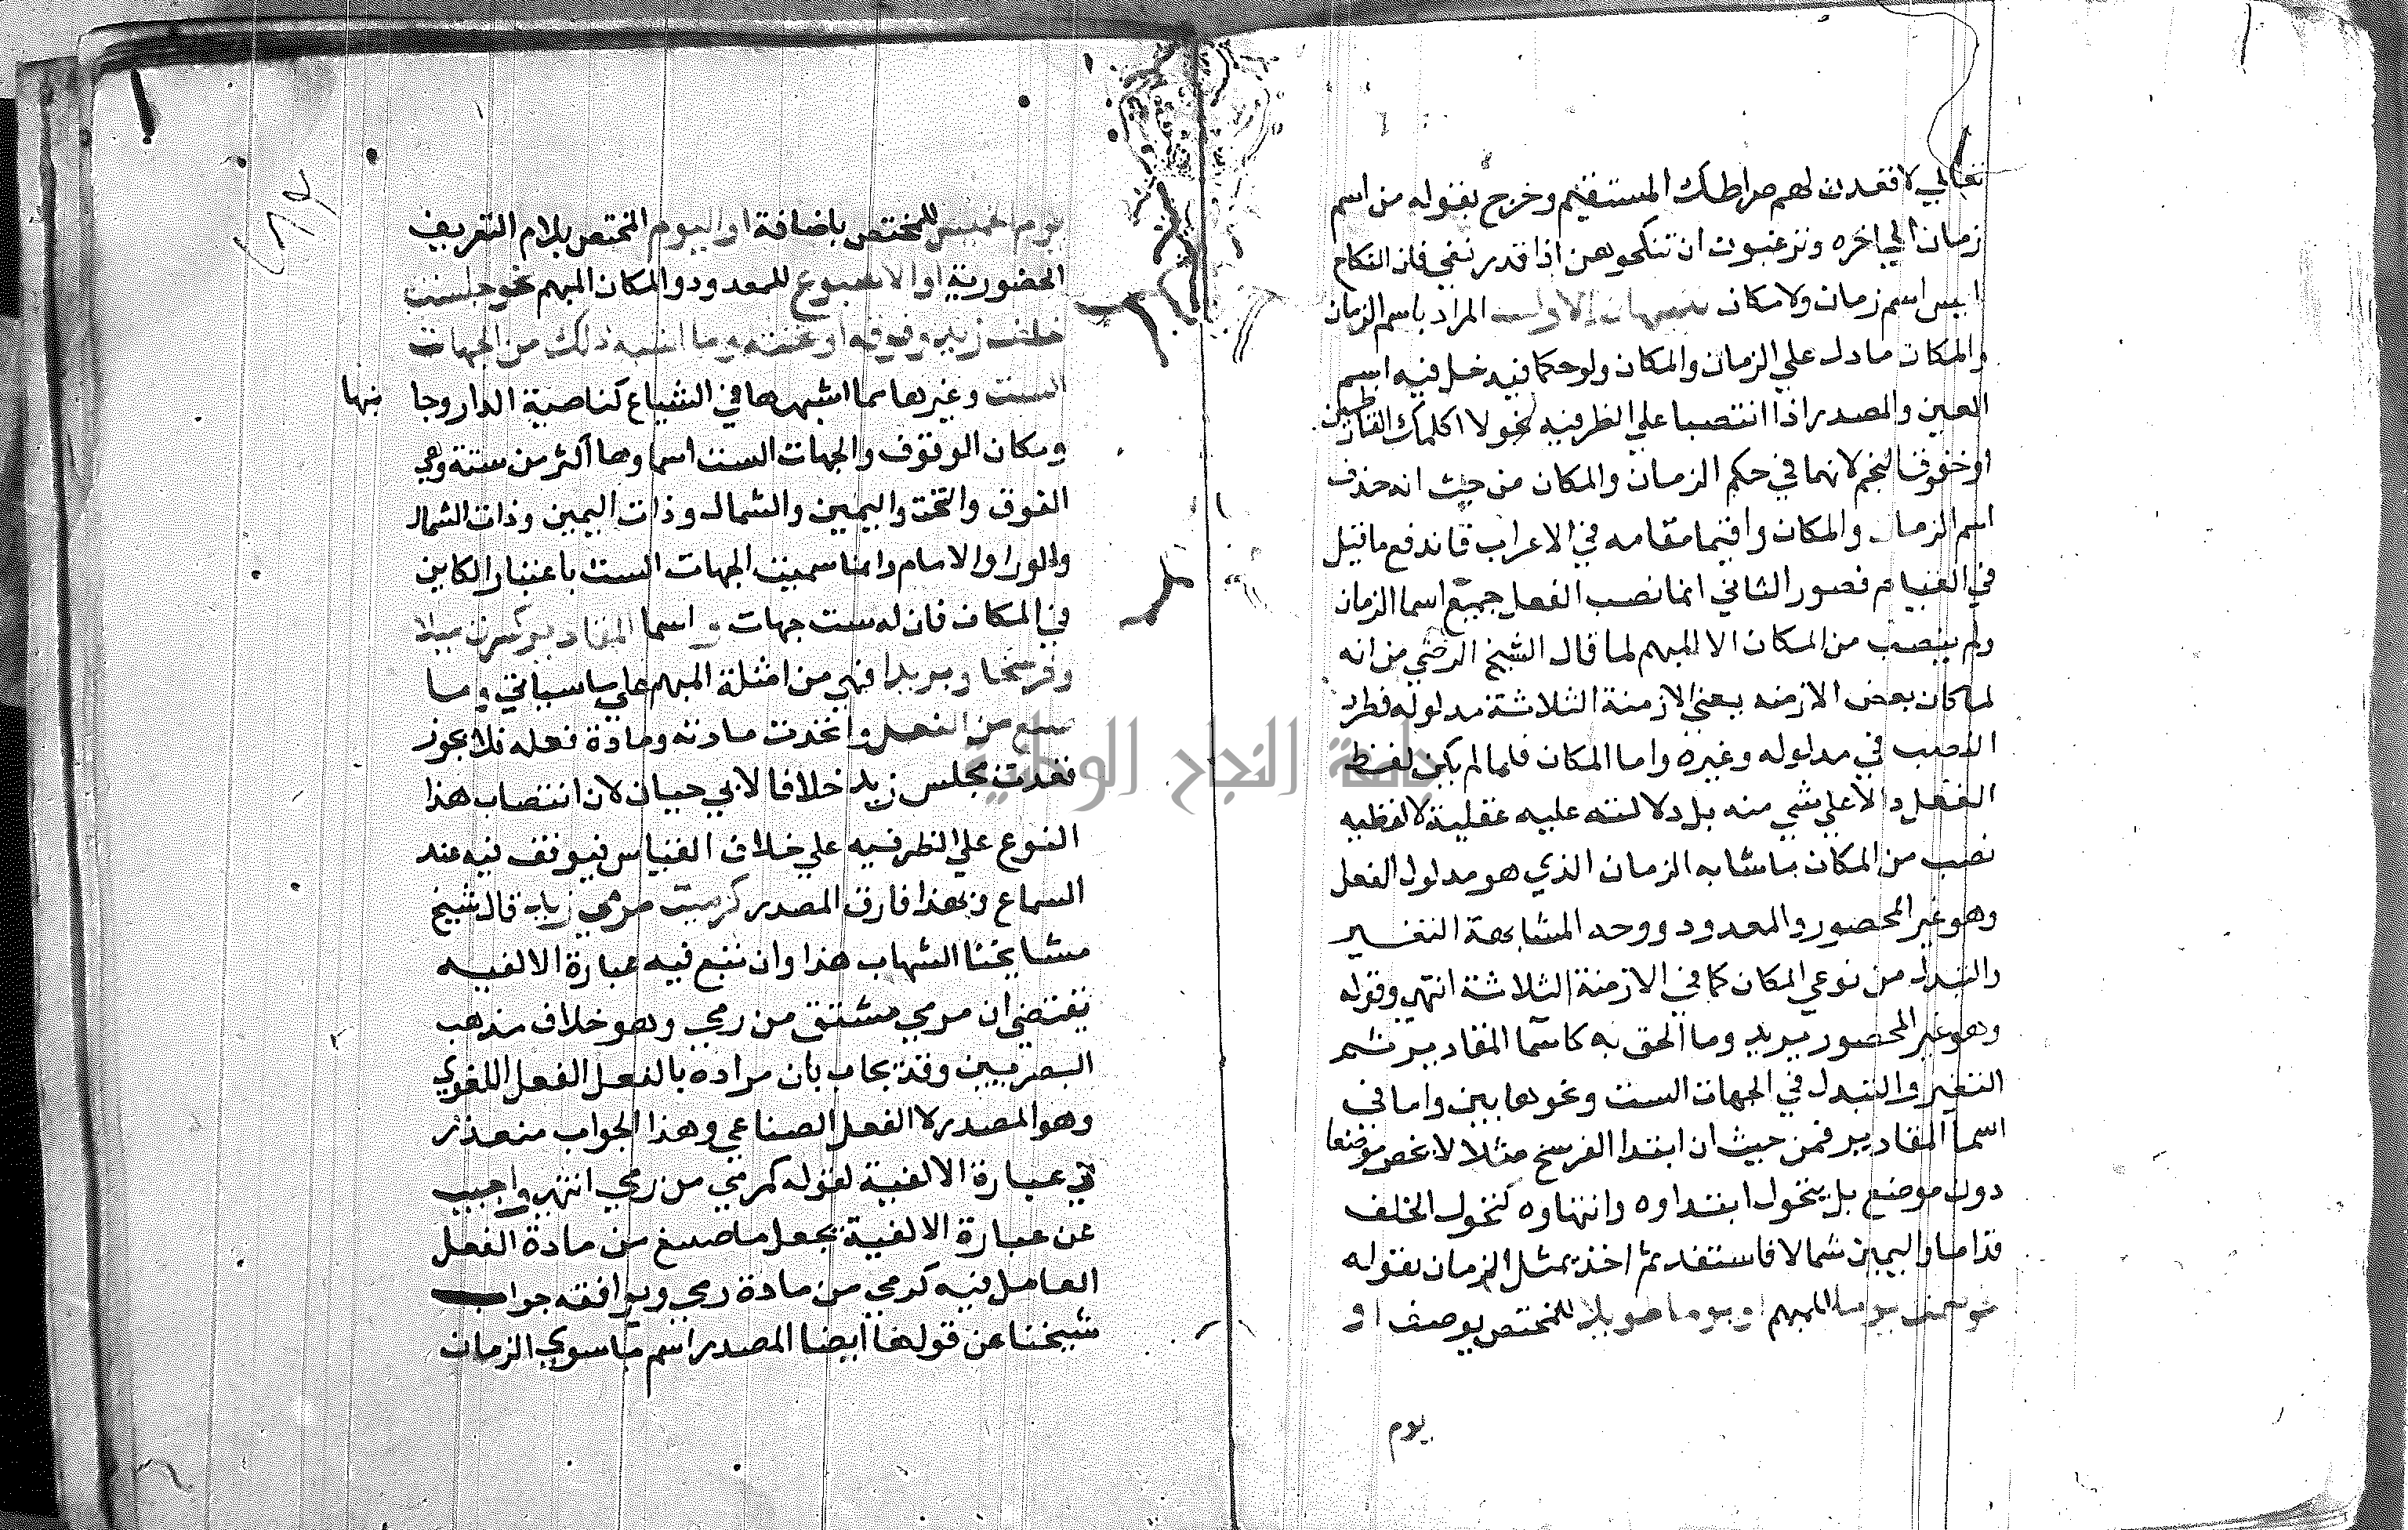 تعالي لاقعدن لهم صراطك المستقيم وخرج بقوله من اسم
زمان الي اخره وترغبون ان تنكحوهن اذا قدر نفي فان النكاح
ليس اسم زمان ولا مكان تنبيهان الاول المراد باسم الزمان
والمكان ما دل علي الزمان والمكان ولو حكما فيدخل فيه اسم
العين والمصدر اذا انتصبا علي الظرفيه نحو لا اكلمك القارظين
او خفوق النجم لانهما في حكم الزمان والمكان من حيث انه حذف
اسم الزمان والمكان واقيما مقامه في الاعراب فاندفع ما قيل
في القيام قصور الثاني انما نصب الفعل جميع اسما الزمان
ولم ينصب من المكان الا المبهم لما قال الشيخ الرضي من انه
لما كان بعض الازمنه يعني الازمنة الثلاثة مدلوله فطرد
النصب في مدلوله وغيره واما المكان فلما لم يكن لفظ
الفعل دالا علي شي منه بل دلالته عليه عقلية لا لفظيه
نصب من المكان ما شابه الزمان الذي هو مدلول الفعل
وهو غير المحصور والمعدود ووجه المشابهة التغيير
والتبدل من نوعي المكان كما في الازمنة الثلاثة انتهي وقوله
وهو غير المحصور يريد وما الحق به كاسما المقادير ثم
التغير والتبدل في الجهات الست ونحوها بين واما في
اسما المقادير فمن حيث ان ابتدا الفرسخ مثلا لا يخص موضعا
دون موضع بل يتحول ابتداوه وانتهاوه كتحول الخلف
قداما واليمين شمالا فاستفد ثم اخذ يمثل الزمان بقوله
يوما للمبهم او يوما طويلا للمختص بوصف او
يوم
يوم الخميس للمختص باضافة او اليوم المختص بلام التعريف
الحضورية او الاسبوع للمعدود والمكان المبهم نحو جلست
خلف زيد وفوقه او تحته وما اشبه ذلك من الجهات
الست وغيرها مما اشبهها في الشياع كناصية الدار وجا نبها
ومكان الوقوف والجهات الست اسماوها اكثر من ستة وهي
الفوق والتحت واليمين والشمال وذات اليمين وذات الشمال
والورا والامام وانما سميت الجهات الست باعتبار الكاين
في المكان فان له ست جهات و اسما المقادير كسرت ميلا
وفرسخا وبريدا فهي من امثلة المبهم علي ما سياتي وما
صيغ من الفعل واتحدت مادته ومادة فعله فلا يجوز
قعدت مجلس زيد خلافا لابي حيان لان انتصاب هذا
النوع علي الظرفيه علي خلاف القياس فيوقف فيه عند
السماع وبهذا فارق المصدر كرميت مرمي زيد قال شيخ
مشايخنا الشهاب هذا وان تبع فيه عبارة الالفيه
يقتضي ان مرمي مشتق من رمي وهو خلاف مذهب
البصريين وقد يجاب بان مراده بالفعل الفعل اللغوي
وهو المصدر لا الفعل الصناعي وهذا الجواب متعذر
في عبارة الالفية لقوله كمرمي من رمي انتهي واجيب
عن عبارة الالفية بجعل ما صيغ من مادة الفعل
العامل فيه كرمي من مادة رمي ويوافقه جواب
شيخنا عن قولها ايضا المصدر اسم ما سوي الزمان
جامعة النجاح الوطنية